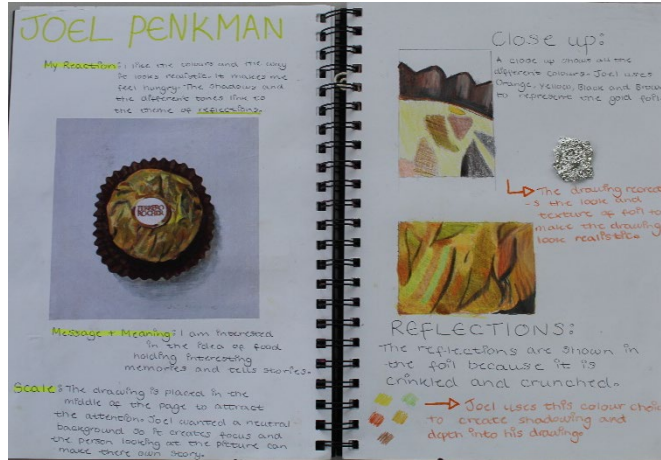 JOEL PENKMAN
My Reaction: I like the colours and the way
it looks realistic. It makes me
feel hungry. The shadows and
the different tones link to
the theme of reflections.
FERRERO
ROCHER
Message + Meaning: I am interested
in the idea of food
holding interesting
memories and tells stories.
Scale: The drawing is placed in the
middle of the page to attract
the attention. Joel wanted a neutral
background so it creates focus and
the person looking at the picture can
make there own story.
Close up:
A close up shows all the
different colours. Joel uses
Orange, Yellow, Black and Brown
to represent the gold foil
The drawing recreat
-s the look and
texture of foil to
make the drawing
look realistic.
REFLECTIONS:
The reflections are shown in
the foil because it is
crinkled and crunched.
Joel uses this colour choic
to create shadowing and
depth into his drawing.